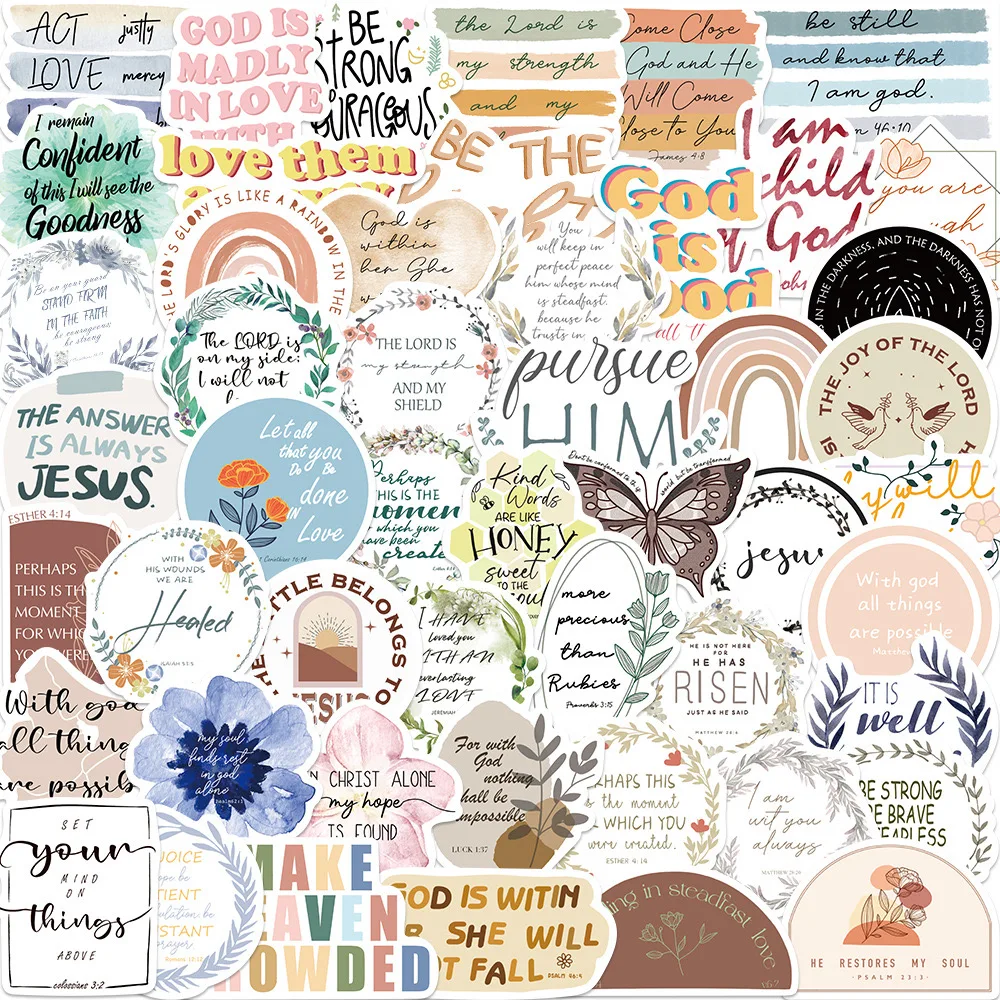 ACT justly
LOVE mercy
GOD IS
MADLY
IN LOVE
WITH
BE
STRONG
COURAGEOUS
the Lord is
my strength
and my
Come Close
God and He
Will Come
Close to You
James 4:8
be still
and know that
I am god.
46:10
I remain
Confident
of this I will see the
Goodness
love them
BE THE
God
is
good
all
I am
child
of God
you are
THE LORD'S GLORY IS LIKE A RAINBOW IN THE
God is
within
her She
You
will keep in
perfect peace
him whose mind
is steadfast,
because he
trusts in
IN THE DARKNESS, AND THE DARKNESS HAS NOT
Be on your guard
STAND FIRM
IN THE FAITH
be courageous
be strong
The LORD is
on my side:
I will not
THE LORD IS
my strength
AND MY
SHIELD
pursue
HIM
THE JOY OF THE LORD
IS
THE ANSWER
IS ALWAYS
JESUS.
Let all
that you
Do Be
done
IN
Love
Corinthians 16:14
Perhaps
THIS IS THE
moment
for which you
have been
created
Kind
Words
ARE LIKE
HONEY
sweet
TO THE
soul
Don't be conformed to this world but be transformed
jesus
will
ESTHER 4:14
PERHAPS
THIS IS THE
MOMENT
FOR WHICH
YOU WERE
WITH
HIS WOUNDS
WE ARE
Healed
ISAIAH 53:5
THE BATTLE BELONGS TO
JESUS
I HAVE
loved you
WITH AN
everlasting
LOVE
JEREMIAH
more
precious
than
Rubies
Proverbs 3:15
HE IS NOT HERE
FOR
HE HAS
RISEN
JUST AS HE SAID
MATTHEW 28:6
With god
all things
are possible
Matthew
With god
all things
are possible
my soul
finds rest
in god
alone
Psalm 62:1
IN CHRIST ALONE
my hope
IS FOUND
For with
God
nothing
shall be
impossible
LUCK 1:37
PERHAPS THIS
IS the moment
WHICH YOU
were created.
ESTHER 4:14
I am
wit you
always
MATTHEW 28:20
IT IS
well
BE STRONG
BE BRAVE
FEARLESS
SET
your
MIND
ON
things
ABOVE
colossians 3:2
REJOICE
hope be
PATIENT
tribulation be
CONSTANT
prayer.
Romans 12:12
MAKE
HEAVEN
CROWDED
GOD IS WITIN
HER SHE WILL
NOT FALL
PSALM 46:5
ing in steadfast love
HE RESTORES MY SOUL
-PSALM 23:3-